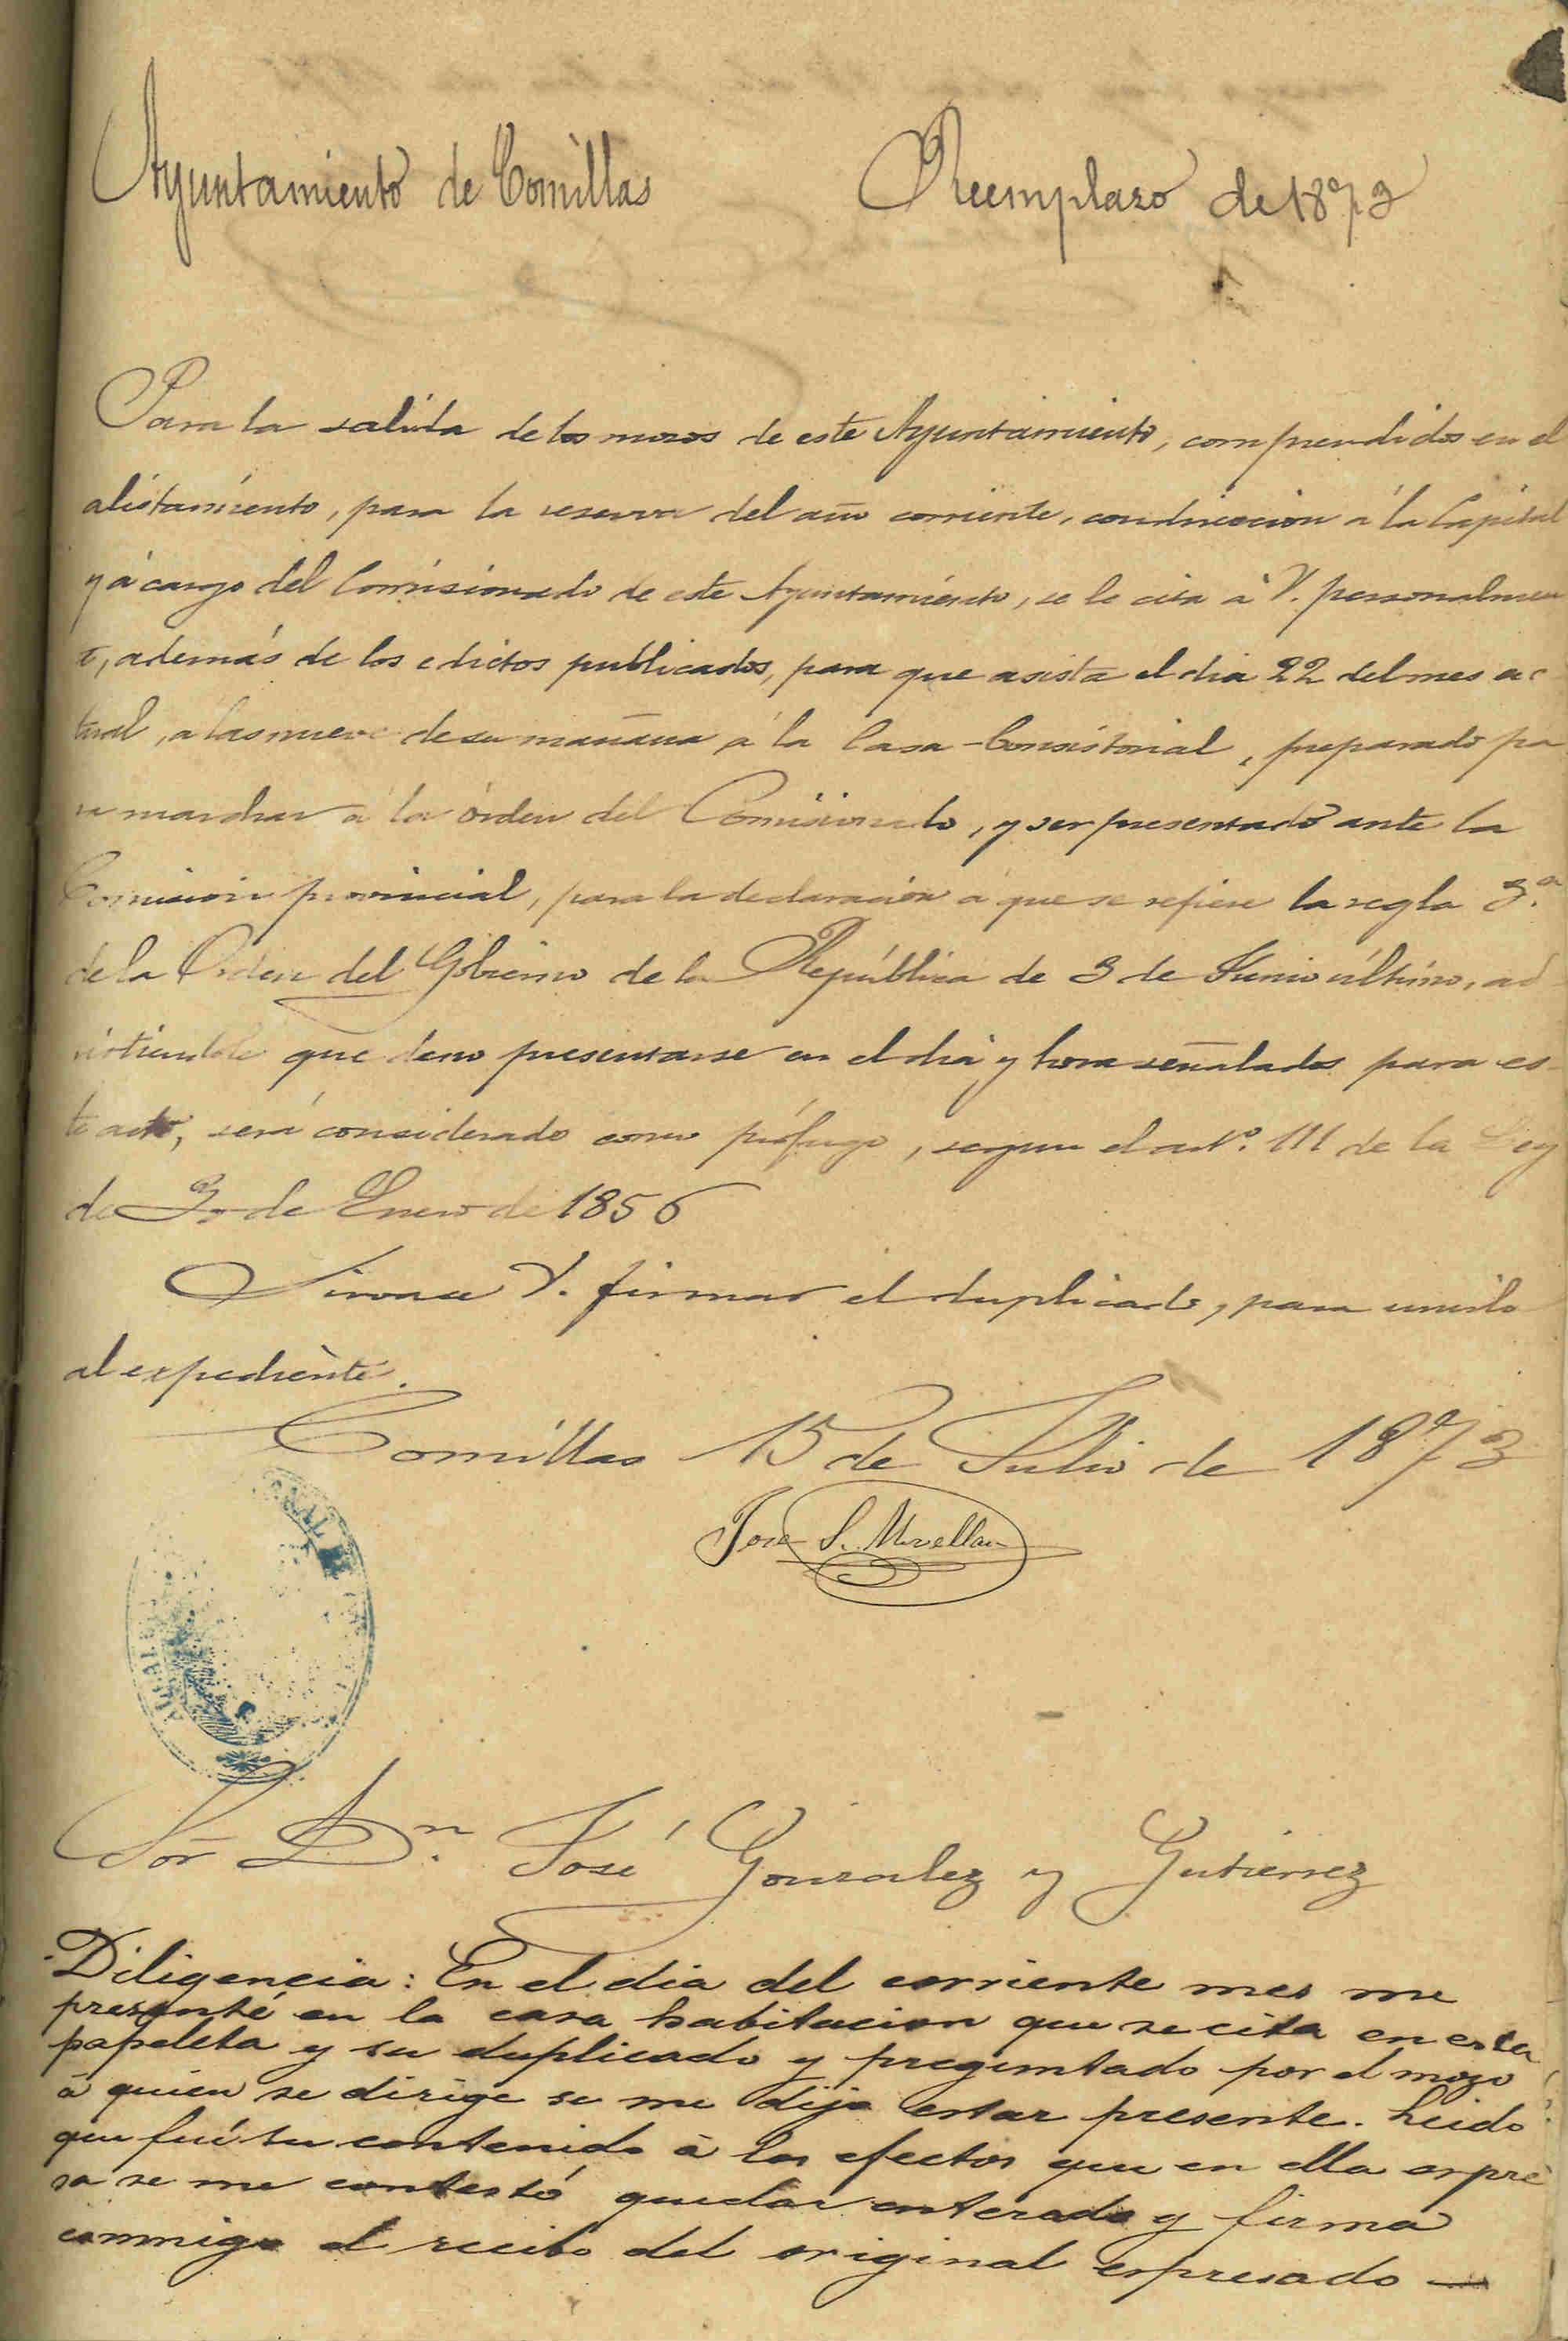 Ayuntamiento de Comillas
Reemplazo de 1873
Para la salida de los mozos de este Ayuntamiento, comprendidos en el
alistamiento, para la reserva del año corriente, conduccion á la Capital
y á cargo del Comisionado de este Ayuntamiento, se le cita á V. personalmen
te, además de los edictos publicados, para que asista el dia 22 del mes ac
tual, a las nueve de su mañana á la Casa-Consistorial, preparado pa
ra marchar á la órden del Comisionado, y ser presentado ante la
Comision provincial, para la declaracion á que se refiere la regla 3.ª
de la Orden del Gobierno de la República de 3 de Junio último, ad
virtiendole que de no presentarse en el dia y hora señalados para es-
te acto, será considerado como prófugo, segun el artº. 111 de la Ley
de 30 de Enero de 1856
Sirvase V. firmar el duplicado, para unirlo
al expediente.
Comillas 15 de Julio de 1873
José S. Movellan
Sor Dn. José Gonzalez y Gutierrez
Diligencia: En el dia del corriente mes me
presenté en la casa habitacion que se cita en esta
papeleta y su duplicado y preguntado por el mozo
á quien se dirige se me dijo estar presente. Leido
que fué su contenido á los efectos que en ella espre
sa se me contestó quedar enterado y firma
conmigo el recibo del original espresado —